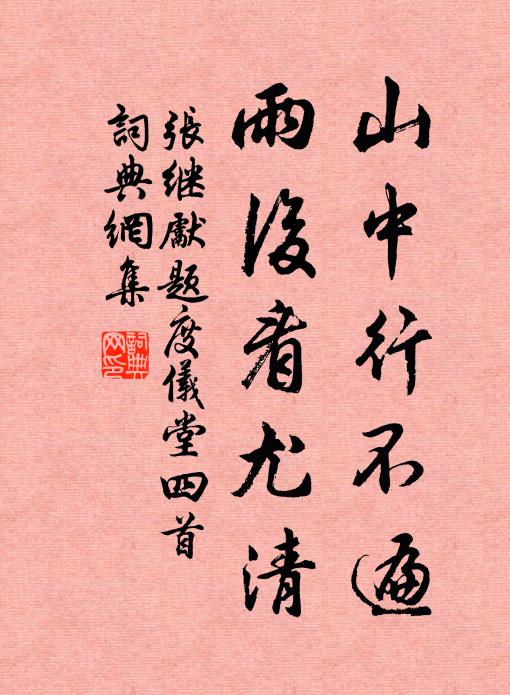 山中行不遍
雨後看尤清
張继獻题度儀堂四首
詞典網集
詞典
网印